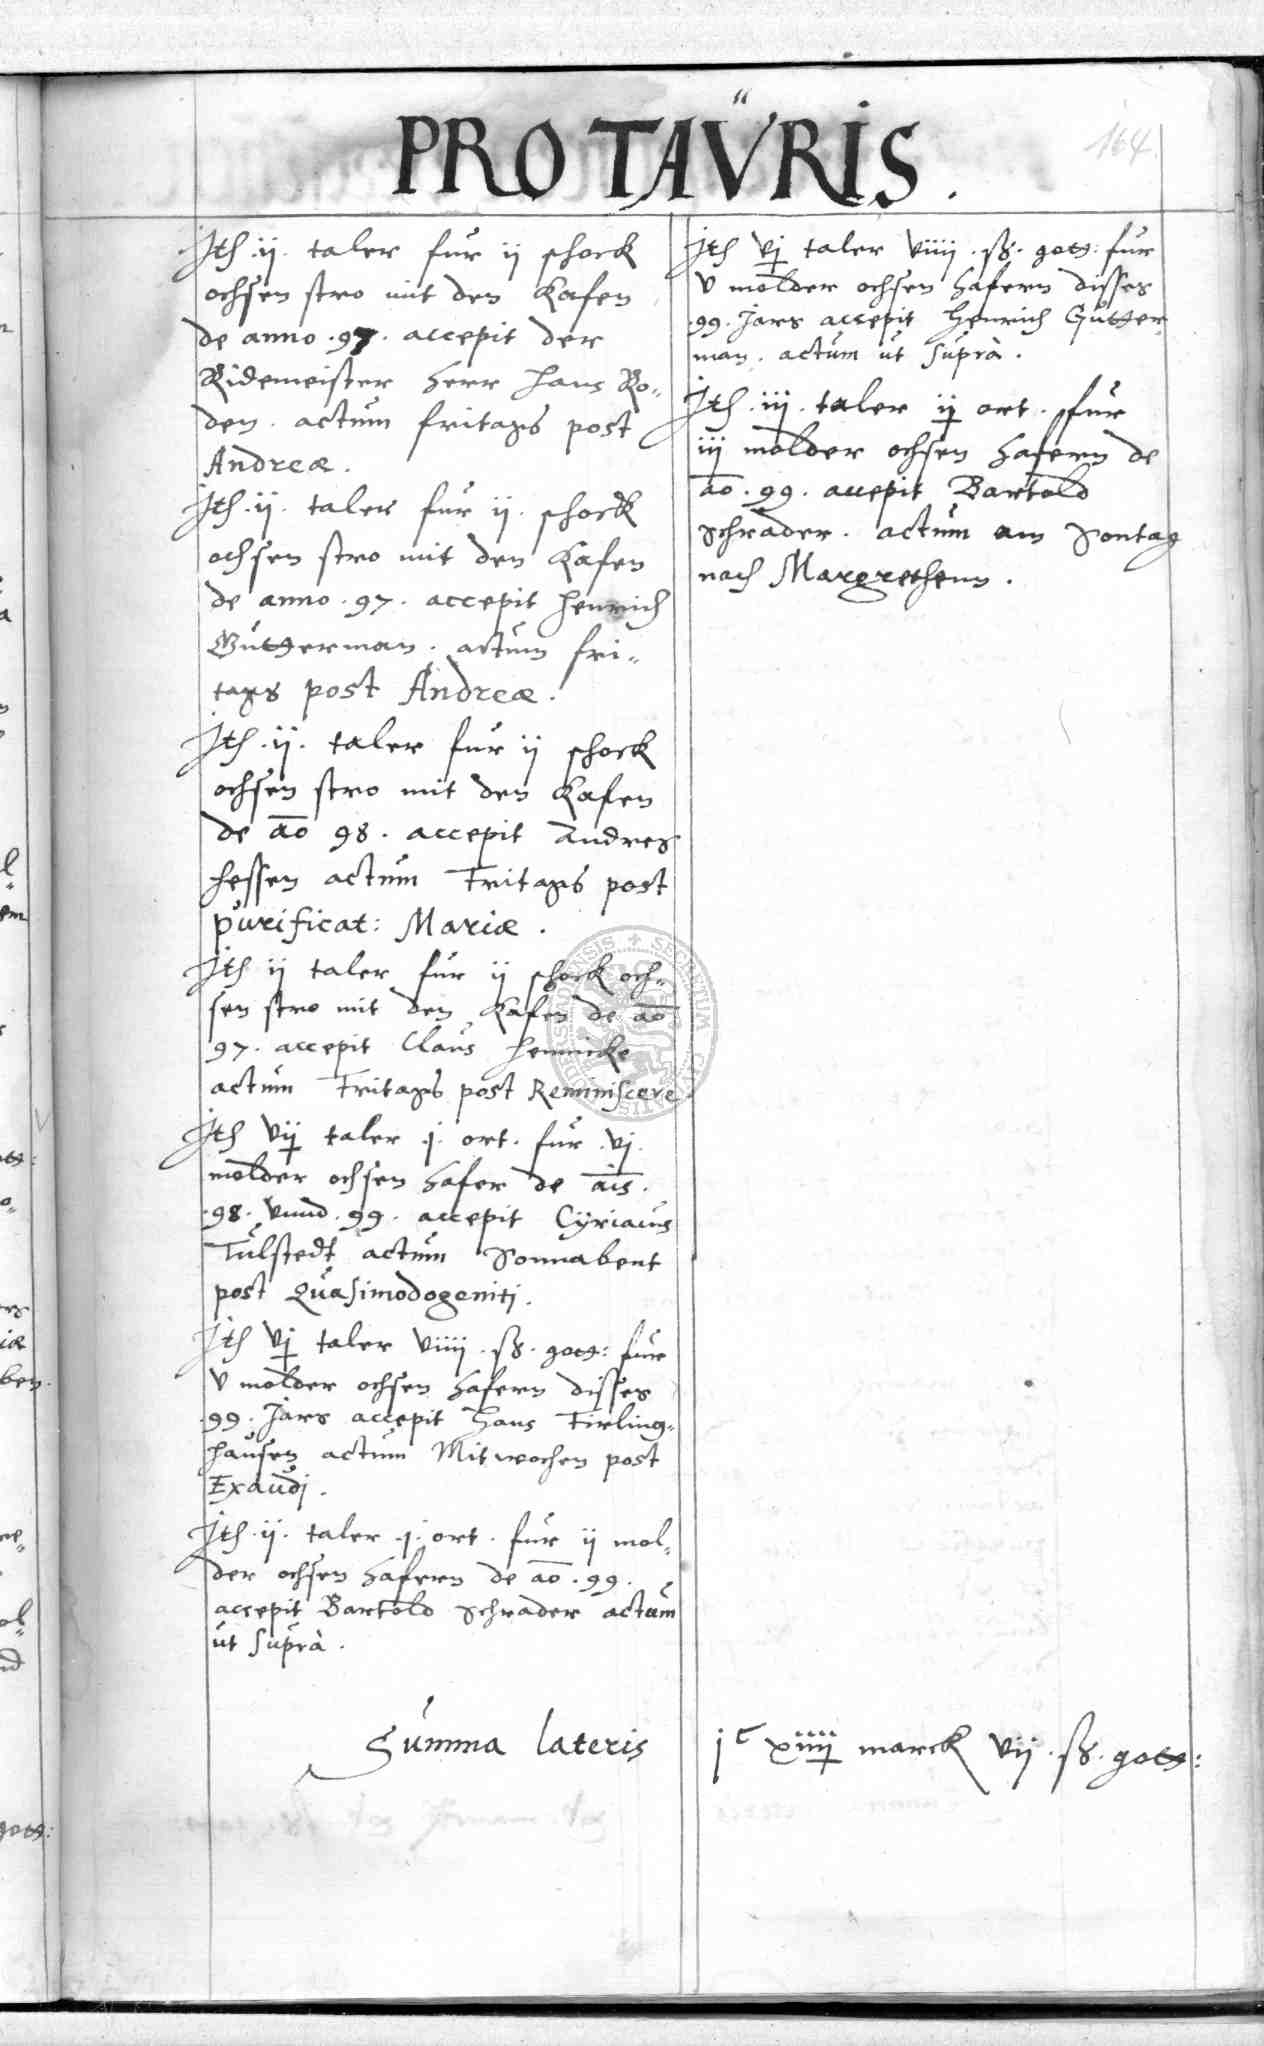 PRO TAVRIS.
164.
Jth .ij. taler fur ij schock
ochsen stro mit den Kafen
de anno .97. accepit der
Ridemeister Herr Hans Ro-
den. actum fritags post
Andreæ.
Jth .ij. taler fur ij. schock
ochsen stro mit den Kafen
de anno .97. accepit Henrich
Gutherman. actum fri-
tags post Andreæ.
Jth .ij. taler fur ij schock
ochsen stro mit den Kafen
de ao 98. accepit Andres
Hessen actum Fritags post
purificat: Mariæ.
Jth ij taler fur ij schock och-
sen stro mit den Kafen de ao
97. accepit Claus Hennicke
actum Fritags post Reminiscere
Jth vij taler .j. ort. fur .vj.
molder ochsen hafer de ais.
.98. vnnd .99. accepit Cÿriacus
Tulstedt actum Sonnabent
post Quasimodogeniti.
Jth vj taler viiij .ß. gott: fur
v molder ochsen hafern disses
.99. Jars accepit Hans Firling-
hausen actum Mitwochen post
Exaudi.
Jth .ij. taler .j. ort. fur ij mol-
der ochsen hafern de ao .99.
accepit Bartold Schrader actum
ut suprà.
Jth vj taler viiij .ß. gott: fur
v molder ochsen hafern disses
.99. Jars accepit Henrich Gutter-
man. actum ut suprà.
Jth .iij. taler ij ort. fur
iij molder ochsen hafern de
ao .99. accepit Bartold
Schrader. actum am Sontag
nach Margrethenn.
Summa lateris jc xiiij marck vij .ß. gott: